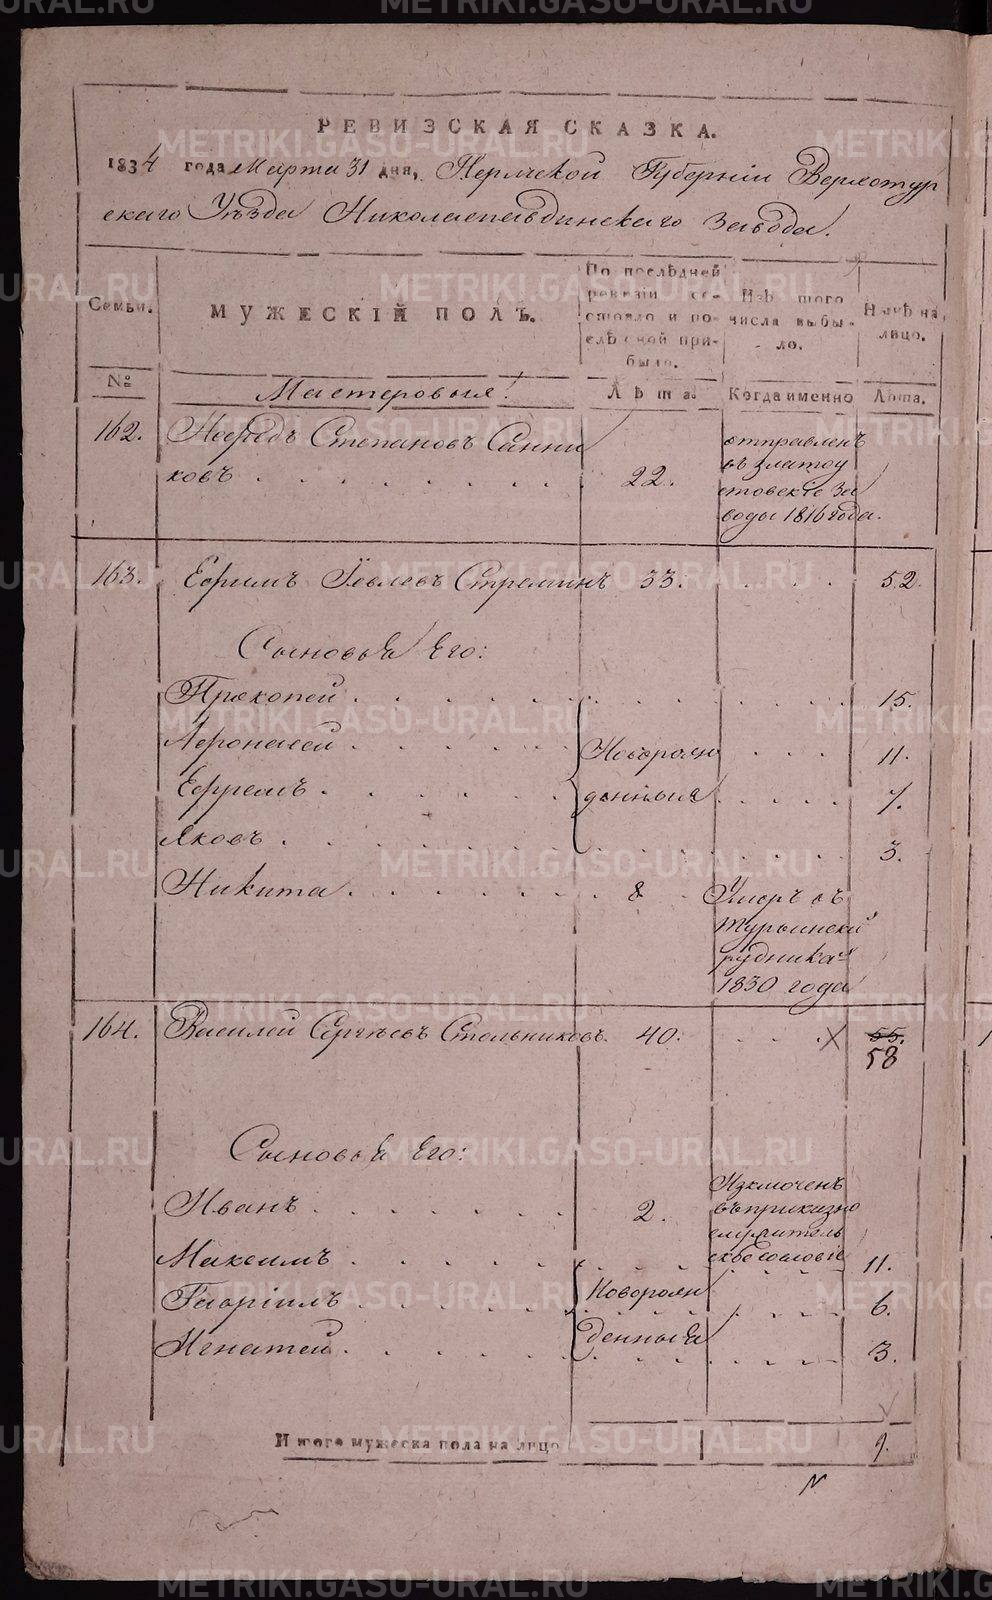 РЕВИЗСКАЯ СКАЗКА.
1834 года Марта 31 дня, Пермской Губернiи Верхотур
скаго Уѣзда Николаепавдинскаго завода.
Семьи. МУЖЕСКIЙ ПОЛЪ. По послѣдней ревизiи состояло и послѣ оной прибыло. Изъ того числа выбыло. Нынѣ на лицо.
№ Мастеровыя: Лѣта. Когда именно Лѣта.
162. Степановъ Санни
ковъ 22. отправленъ
въ златоу
стовскiе За
воды 1816 года.
163. Ефимъ Iевлевъ Стреминъ 33. 52.
Сыновья Его:
Прокопей 15.
Афонасей Новорож 11.
Ефремъ денныя 7.
Яковъ 3.
Никита 8 Умеръ въ
Турьинскихъ
рудникахъ
1830 года
164. Василей Сергѣевъ Стольниковъ 40. X 55.
58
Сыновья Его:
Иванъ 2. Изключенъ
въ приказно
служитель
ское сословiе
Максимъ 11.
Гаврiилъ Новорож 6.
Игнатей денныя 3.
Итого мужеска пола на лицо 9.
METRIKI.GASO-URAL.RU